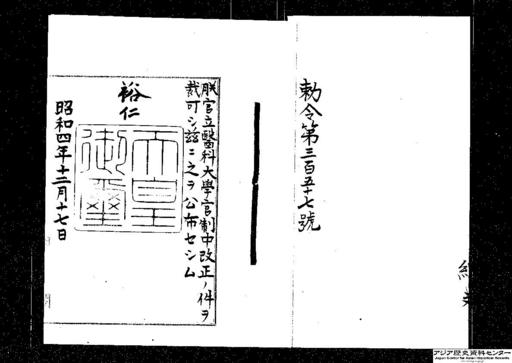 勅令第三百五十七號
朕官立醫科大學官制中改正ノ件ヲ
裁可シ茲ニ之ヲ公布セシム
裕仁
天皇御璽
昭和四年十二月十七日
アジア歴史資料センター
Japan Center for Asian Historical Records